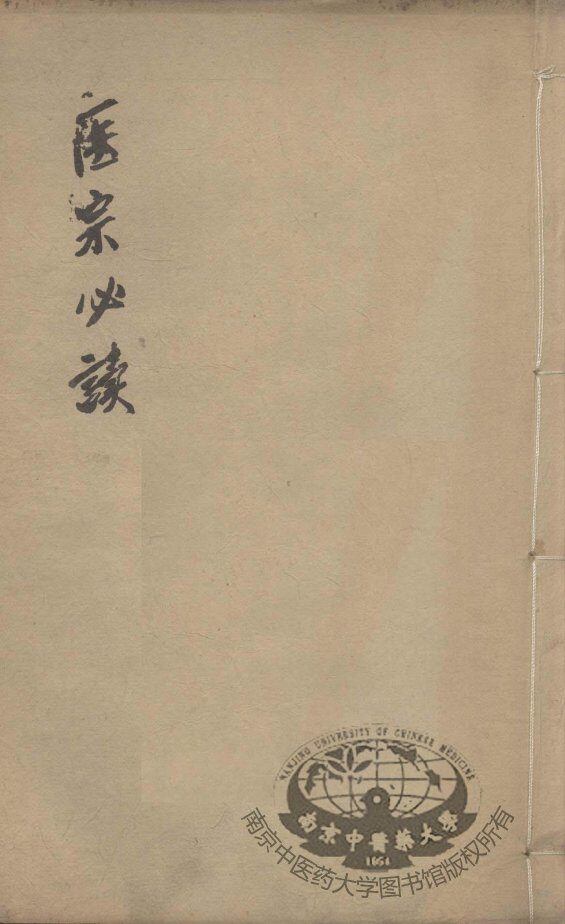 医宗必读
NANJING UNIVERSITY OF CHINESE MEDICINE
南京中醫藥大學
1954
南京中医药大学图书馆版权所有